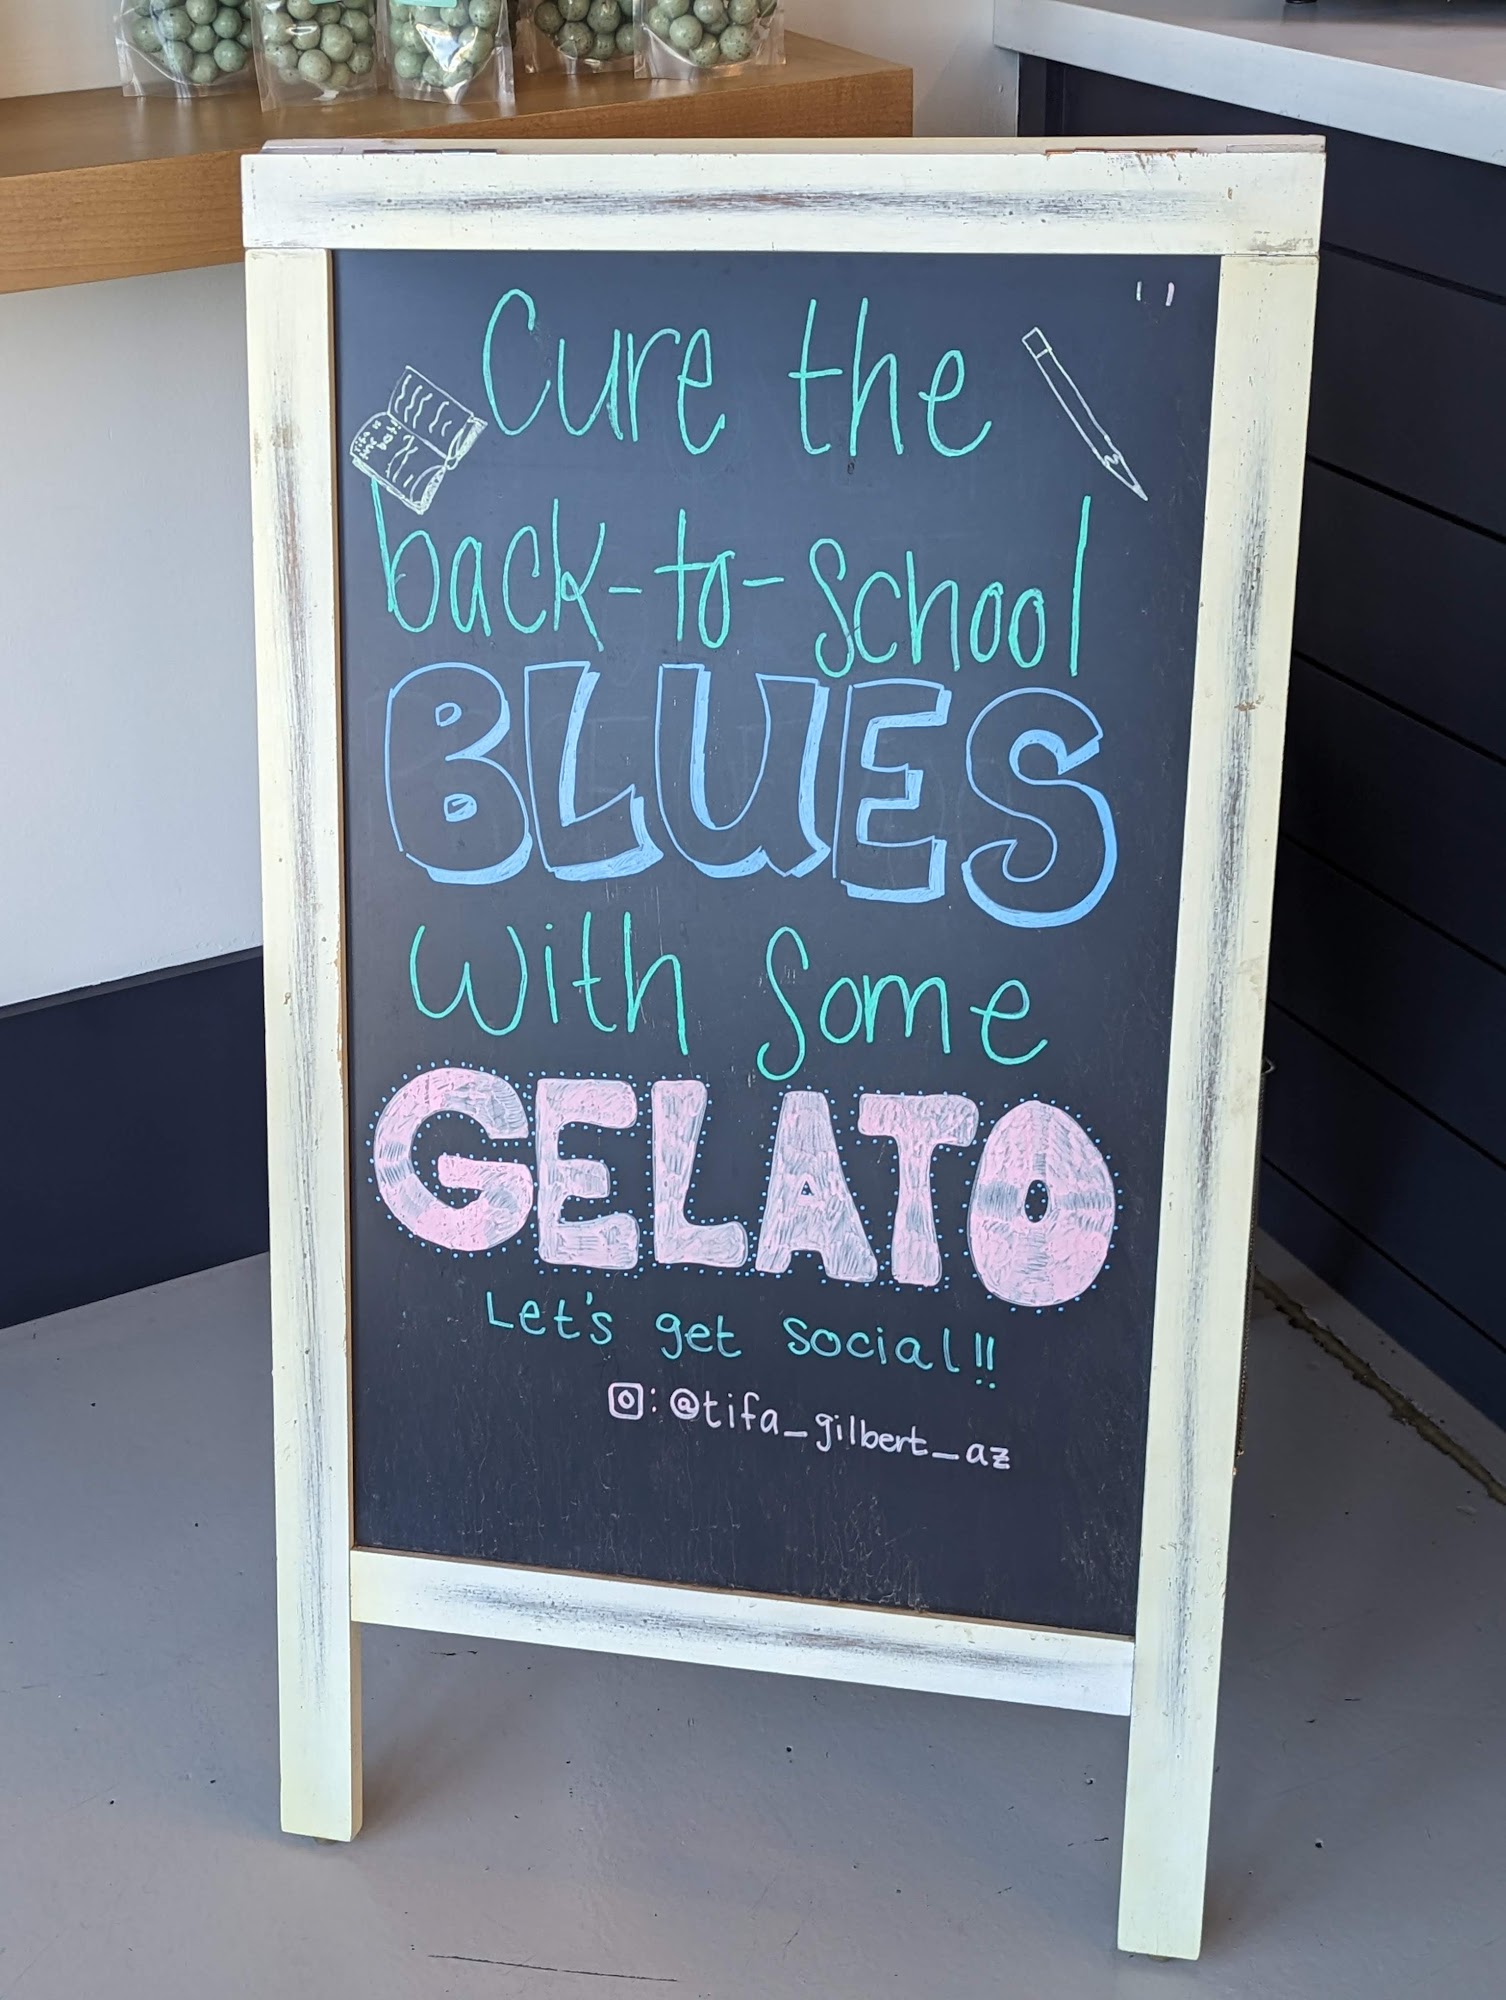 Cure the
Tifa is
the best
back-to-school
BLUES
with some
GELATO
Let's get social!!
: @tifa_gilbert_az